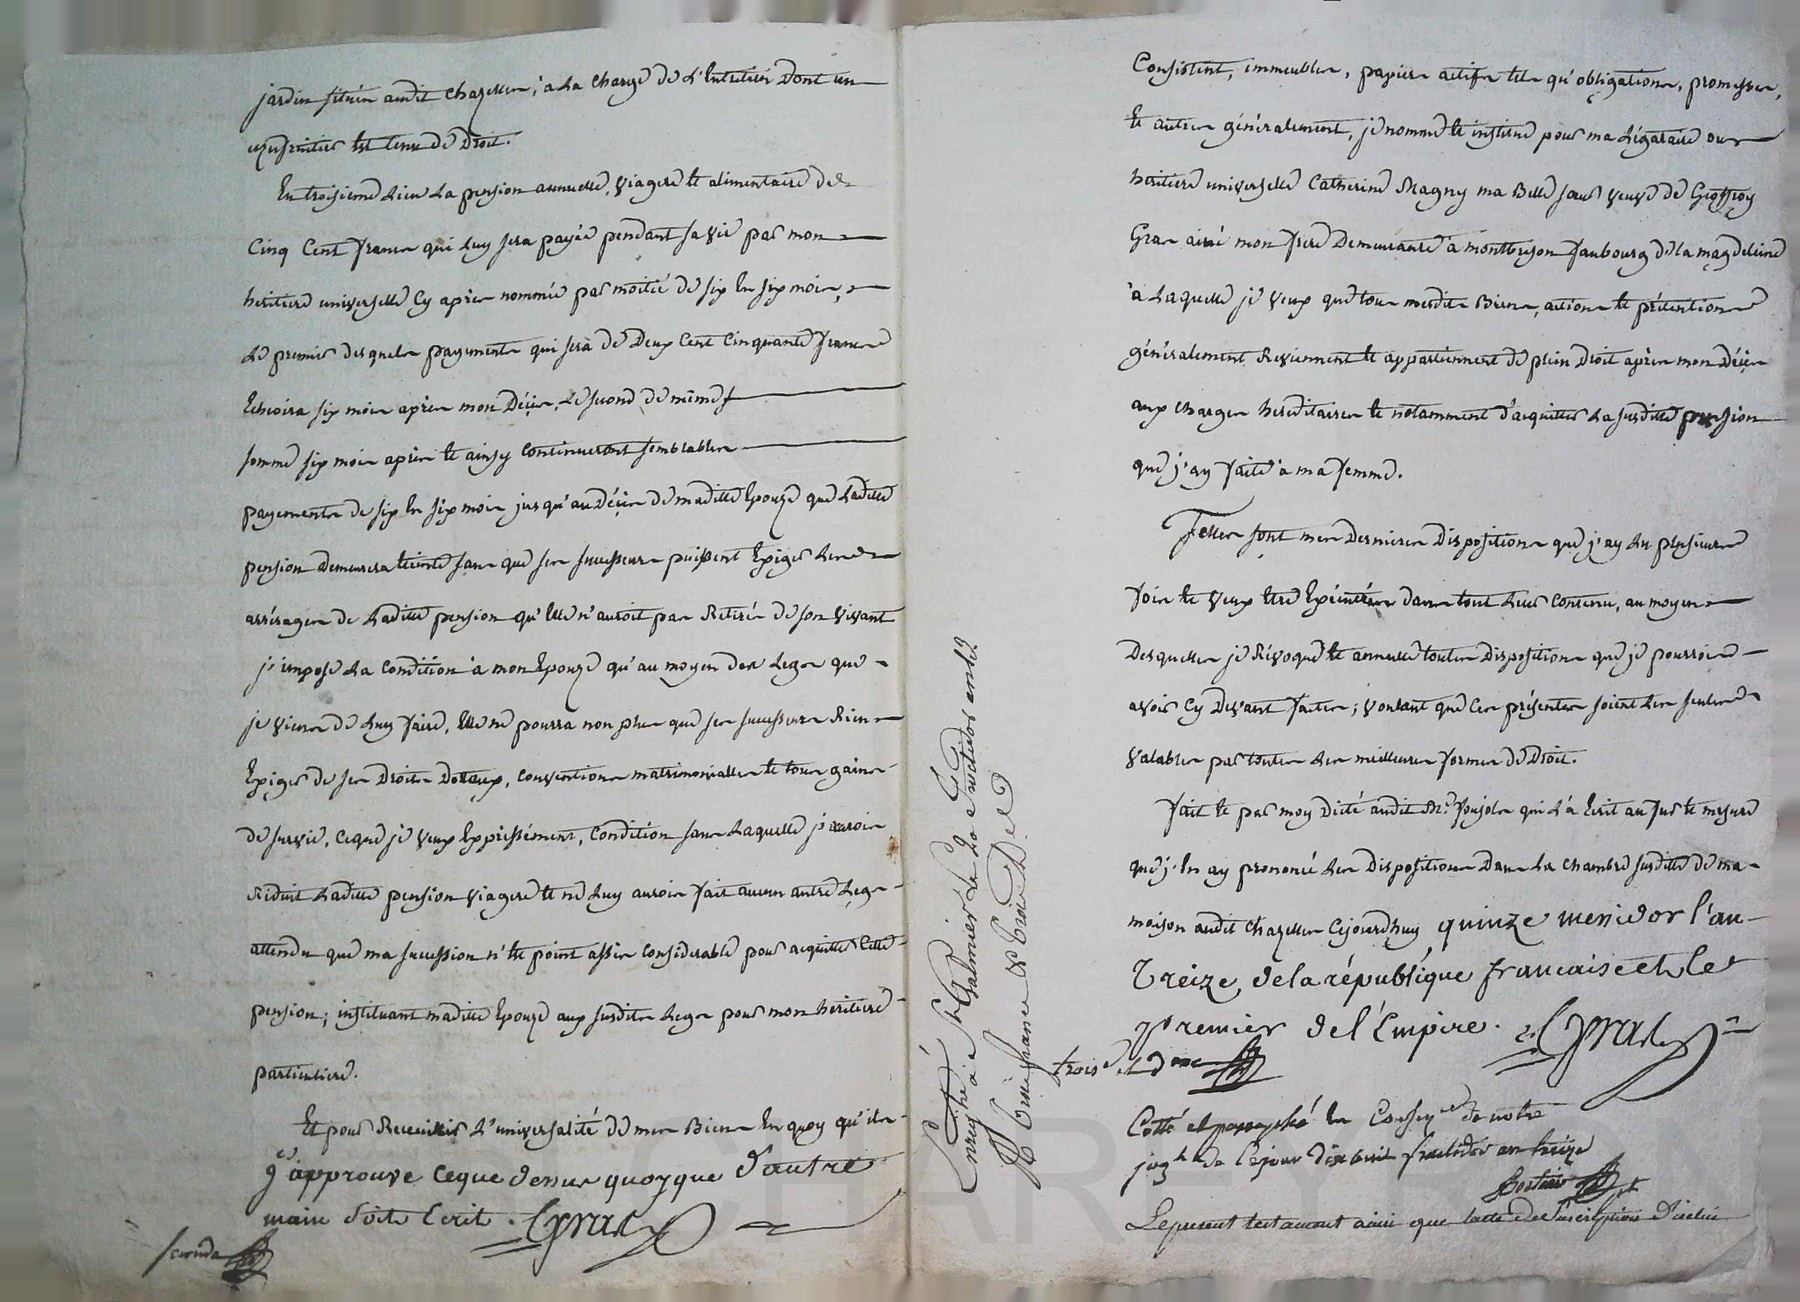 jardin situés audit Chazelles, à la charge de l'entretien dont un
usufruitier est tenu de droit.
En troisieme lieu la pension annuelle, viagere et alimentaire de
Cinq Cent francs qui luy sera payée pendant sa vie par mon
heritiere universelle cy après nommée par moitié de six en six mois,
le premier desquels payements qui sera de deux Cent Cinquante francs
Echoira six mois après mon décès, le second de même
somme six mois après et ainsy continueront semblables
payements de six en six mois jusqu'au décès de maditte Epouse que laditte
pension demeurera éteinte sans que ses successeurs puissent Exiger les
arrérages de laditte pension qu'Elle n'auroit pas Retirés de son vivant
j'impose la Condition à mon Epouse qu'au moyen des legs que
je viens de luy faire, Elle ne pourra non plus que ses successeurs Rien
Exiger de ses Droits Dottaux, conventions matrimonialles et tous gains
de survie, ce que je veux Expressément, Condition sans laquelle j'aurois
Réduit laditte pension viagere et ne luy aurois fait aucun autre legs
attendu que ma succession n'est point assés considerable pour acquitter cette
pension; instituant maditte Epouse aux susdits legs pour mon héritiere
particuliere.
Et pour Recueillir l'universalité de mes Biens En quoy qu'ils
j'approuve ce que dessus quoyque d'autre
main soit Ecrit. Gras
seconde
Enregistré à St Galmier le
Consistent, immeubles, papiers actifs tels qu'obligations, promesses,
et autres généralement, je nomme et institue pour ma légataire ou
héritiere universelle Catherine Magny ma Belle sœur veuve de Geoffroy
Gras ainé mon frere Demeurante à montbrison faubourg de la magdeleine
à laquelle je veux que tous mesdits Biens, actions et prétentions
généralement Reviennent et appartiennent de plein Droit après mon décès
aux charges hereditaires et notamment d'acquitter la susditte pension
que j'ay faite à ma femme.
Telles sont mes dernieres Dispositions que j'ay lu plusieurs
fois et veux être Exécutées dans tout leur contenu, au moyen
Desquelles je Révoque et annulle toutes Dispositions que je pourrois
avoir cy Devant faites; voulant que les présentes soient les seules
valables par toutes les meilleures formes de Droit.
fait et par moy Dicté audit Mr. Poujols qui l'a Ecrit au fur et mesure
que j'en ay prononcé les Dispositions Dans la chambre susditte de ma
maison audit Chazelles Cejourdhuy quinze messidor l'an
Treize de la république francaise et le
premier de l'Empire. Gras
troisе et dre
Cotté et paraphé en Conseqce de notre
jugt de cejour dix huit fructidor an treize
Le present testament ainsi que lacte de suscription d'icelui